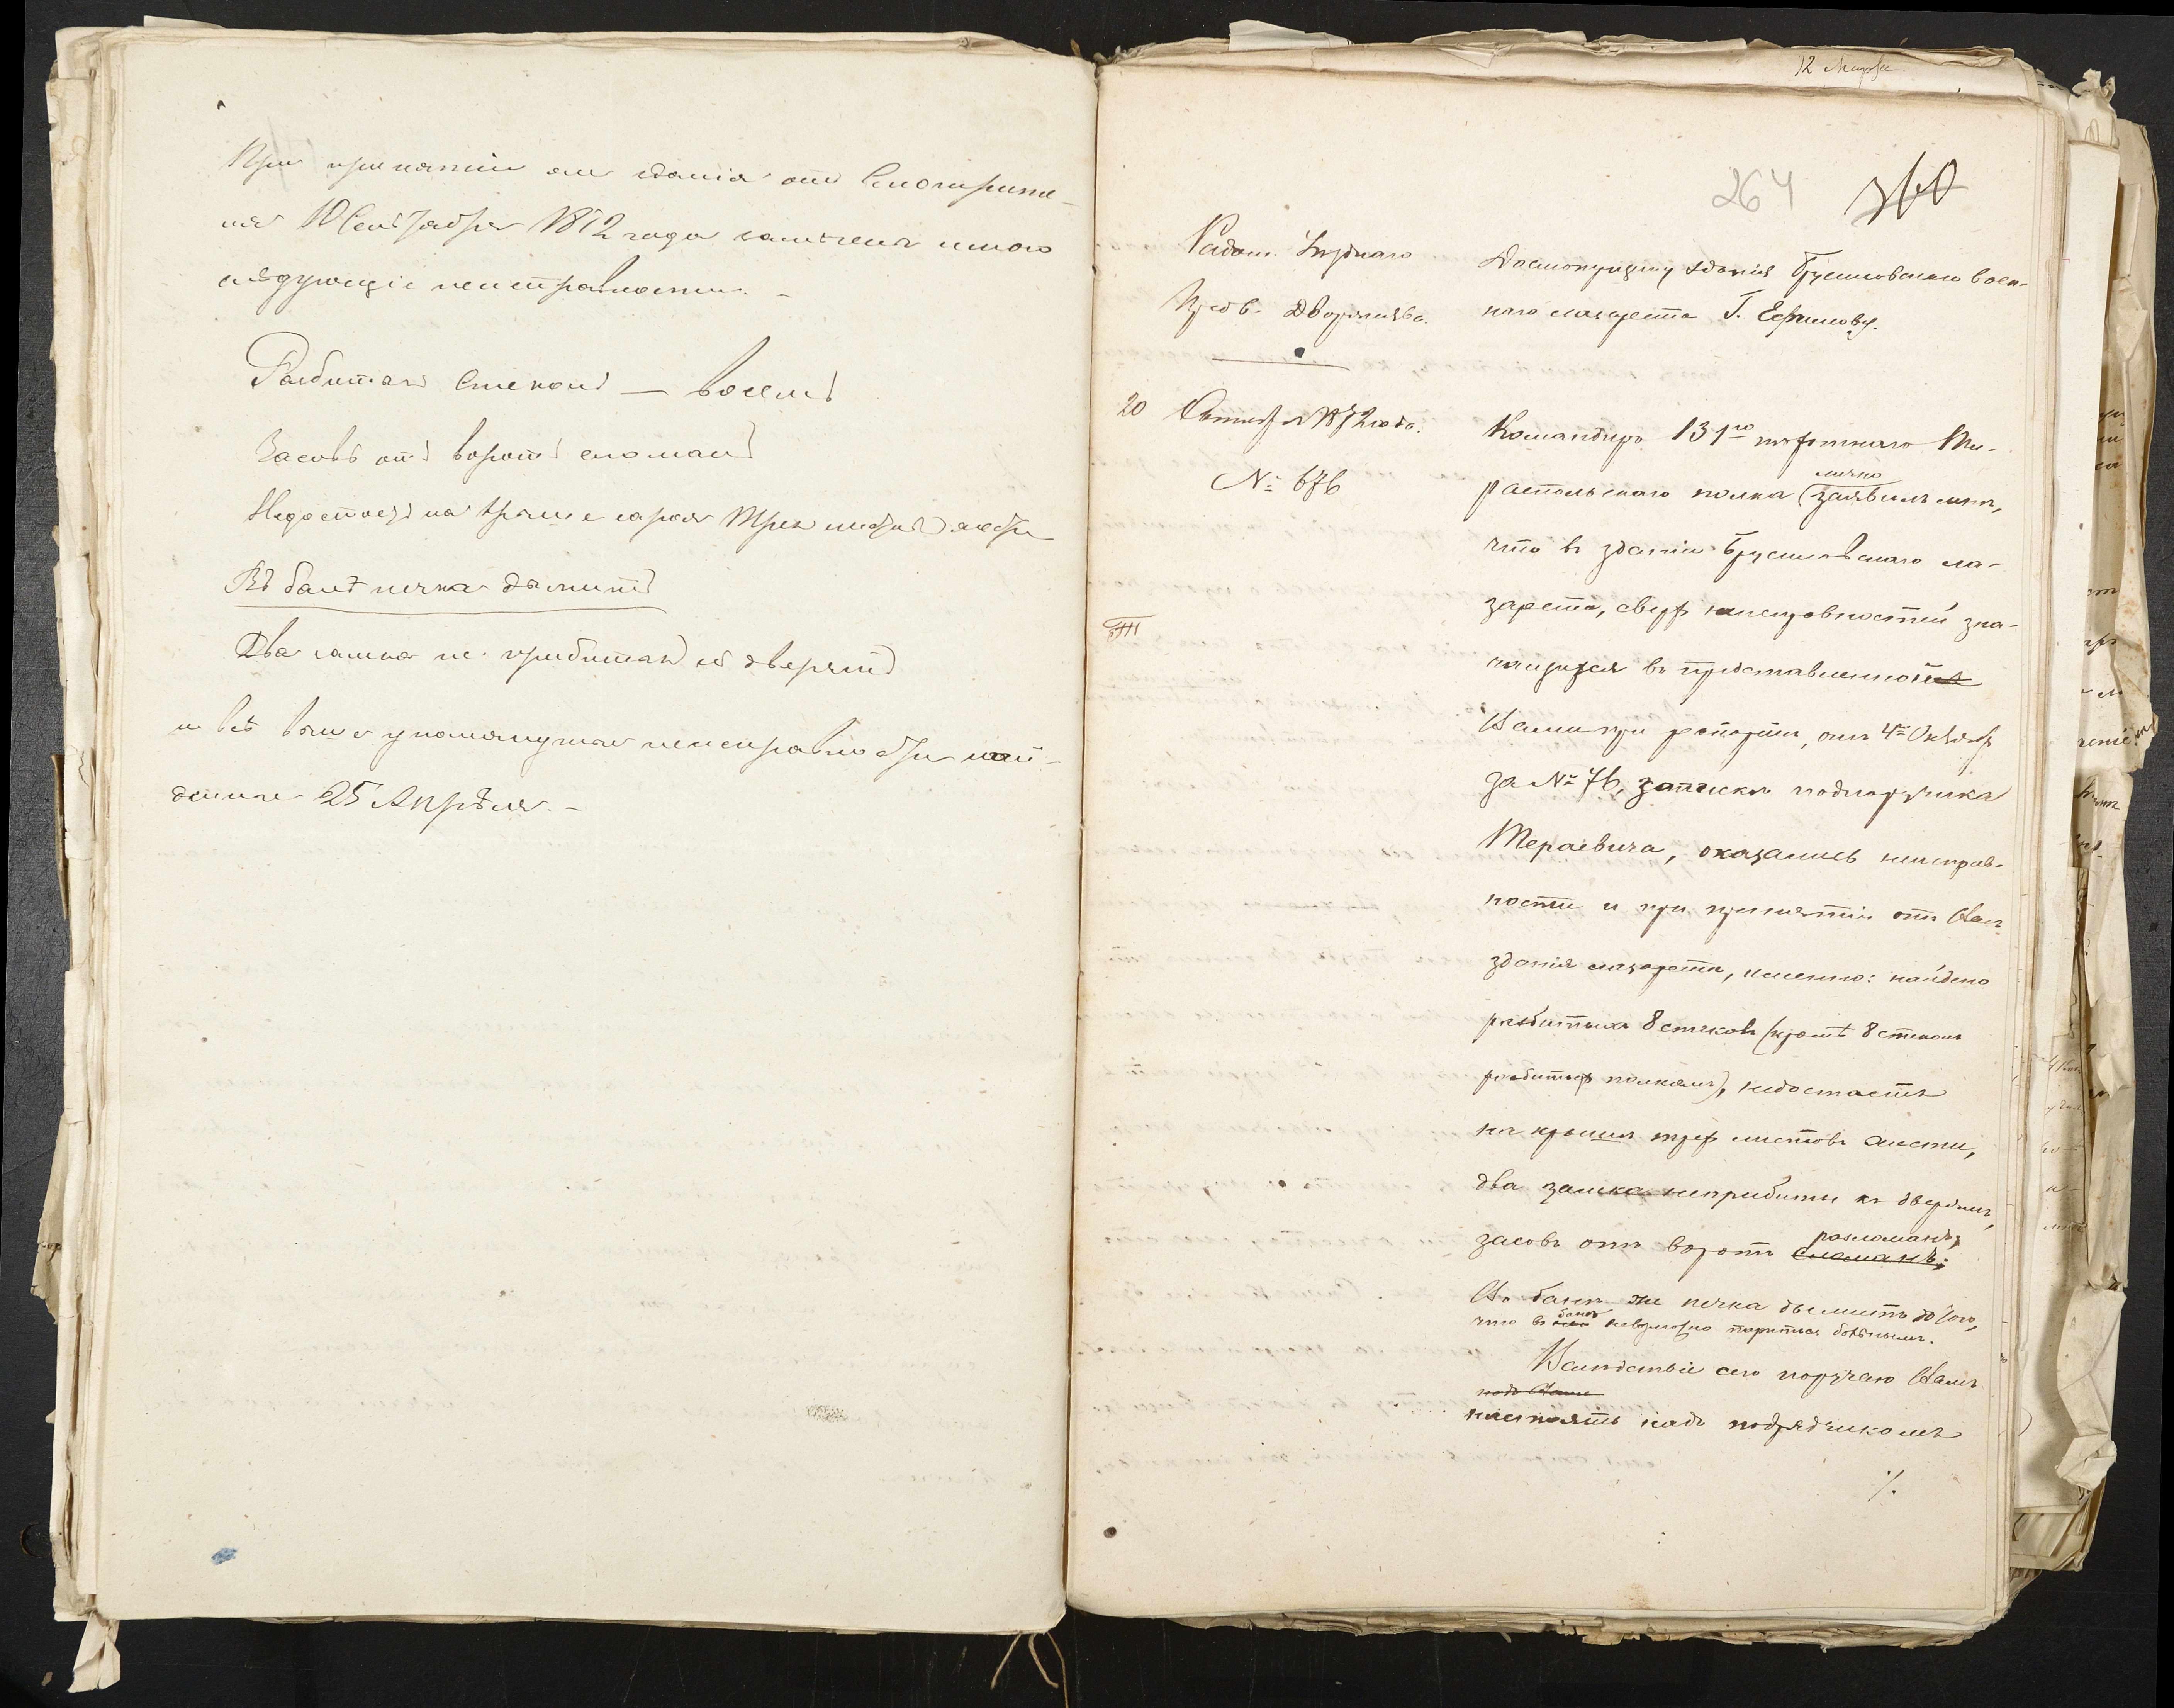 При принятіи зданія отъ Смотрите-
ля 10 Сентября 1872 года замѣчены мною
слѣдующіе неисправности. –
Разбитахъ Стеколъ — восемь
Засовъ отъ воротъ сломанъ
Недостаетъ на крыше сарая трехъ листовъ жести
Въ банѣ печка дымитъ
Два замка не прибитахъ къ дверямъ
и всѣ выше упомянутые неисправности най-
денные 25 Апрѣля. –
12 Марта
264 360
Радом. Уѣзднаго
Предв. Дворянства.
20 Октября 1872 года.
№ 676
Смотрящему зданія Брусиловскаго воен-
наго лазарета Г. Ефимову.
Командиръ 131го пѣхотнаго Ти-
лично
распольскаго полка заявилъ мнѣ,
что въ зданіи Брусиловскаго ла-
зарета, сверхъ неисправностей зна-
чащихся въ представленной
Вами при рапортѣ, отъ 4го Октября
за № 76, записки подпоручика
Тераевича, оказались неисправ-
ности и при принятіи отъ Васъ
зданія лазарета, именно: найдено
разбитыхъ 8 стеколъ (кромѣ 8 стеколъ
разбитыхъ полкомъ), недостаетъ
на крышѣ трехъ листовъ жести,
два замка неприбиты къ дверямъ,
разломанъ;
засовъ отъ воротъ сломанъ;
Въ банѣ же печка дымитъ до того,
банѣ
что въ ней невозможно париться больнымъ.
Вслѣдствіе сего поручаю Вамъ
настоять надъ подрядчикомъ
./.